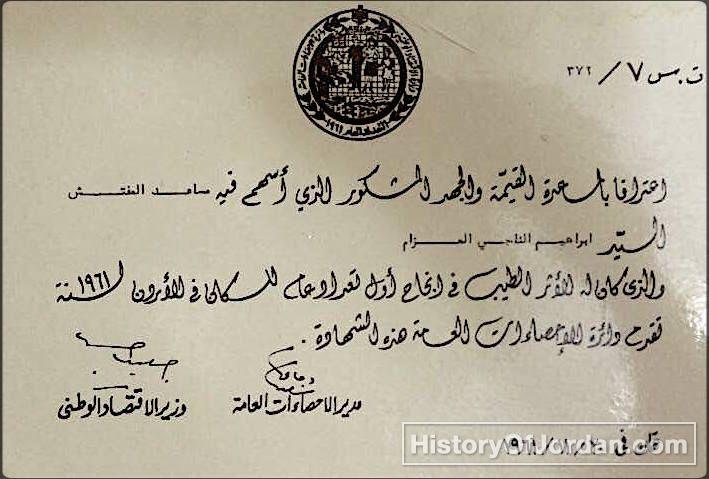 التعداد العام ١٩٦١
ت.س/٧ ٣٧٢
اعترافا بالمساعدة القيّمة والجهد المشكور الذي أسهم فيه مساعد المفتش
السيّد ابراهيم الناجي العزام
والذي كان له الأثر الطيب في انجاح أول تعداد عام للسكان في الأردن لسنة ١٩٦١
تقدم دائرة الإحصاءات العامة هذه الشهادة.
مدير الاحصاءات العامة
وزير الاقتصاد الوطني
عمان في
HistoryOfJordan.com